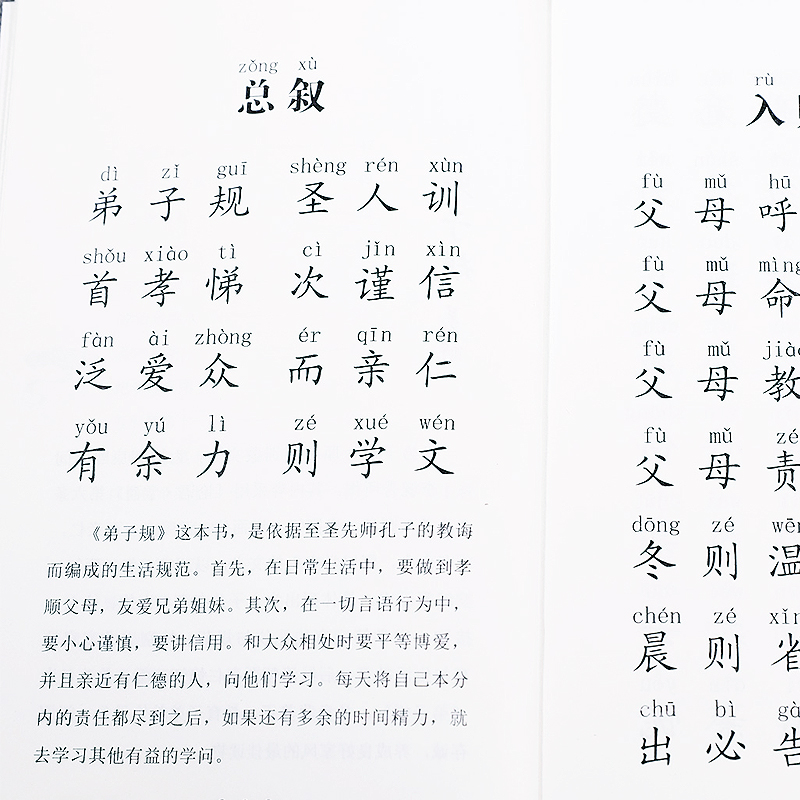 zǒng xù
总叙
dì zǐ guī shèng rén xùn
弟子规 圣人训
shǒu xiào tì cì jǐn xìn
首孝悌 次谨信
fàn ài zhòng ér qīn rén
泛爱众 而亲仁
yǒu yú lì zé xué wén
有余力 则学文
《弟子规》这本书，是依据至圣先师孔子的教诲
而编成的生活规范。首先，在日常生活中，要做到孝
顺父母，友爱兄弟姐妹。其次，在一切言语行为中，
要小心谨慎，要讲信用。和大众相处时要平等博爱，
并且亲近有仁德的人，向他们学习。每天将自己本分
内的责任都尽到之后，如果还有多余的时间精力，就
去学习其他有益的学问。
rù
入
fù mǔ hū
父母呼
fù mǔ mìng
父母命
fù mǔ
父母教
fù mǔ zé
父母责
dōng zé
冬则温
chén zé
晨则
chū bì
出必告